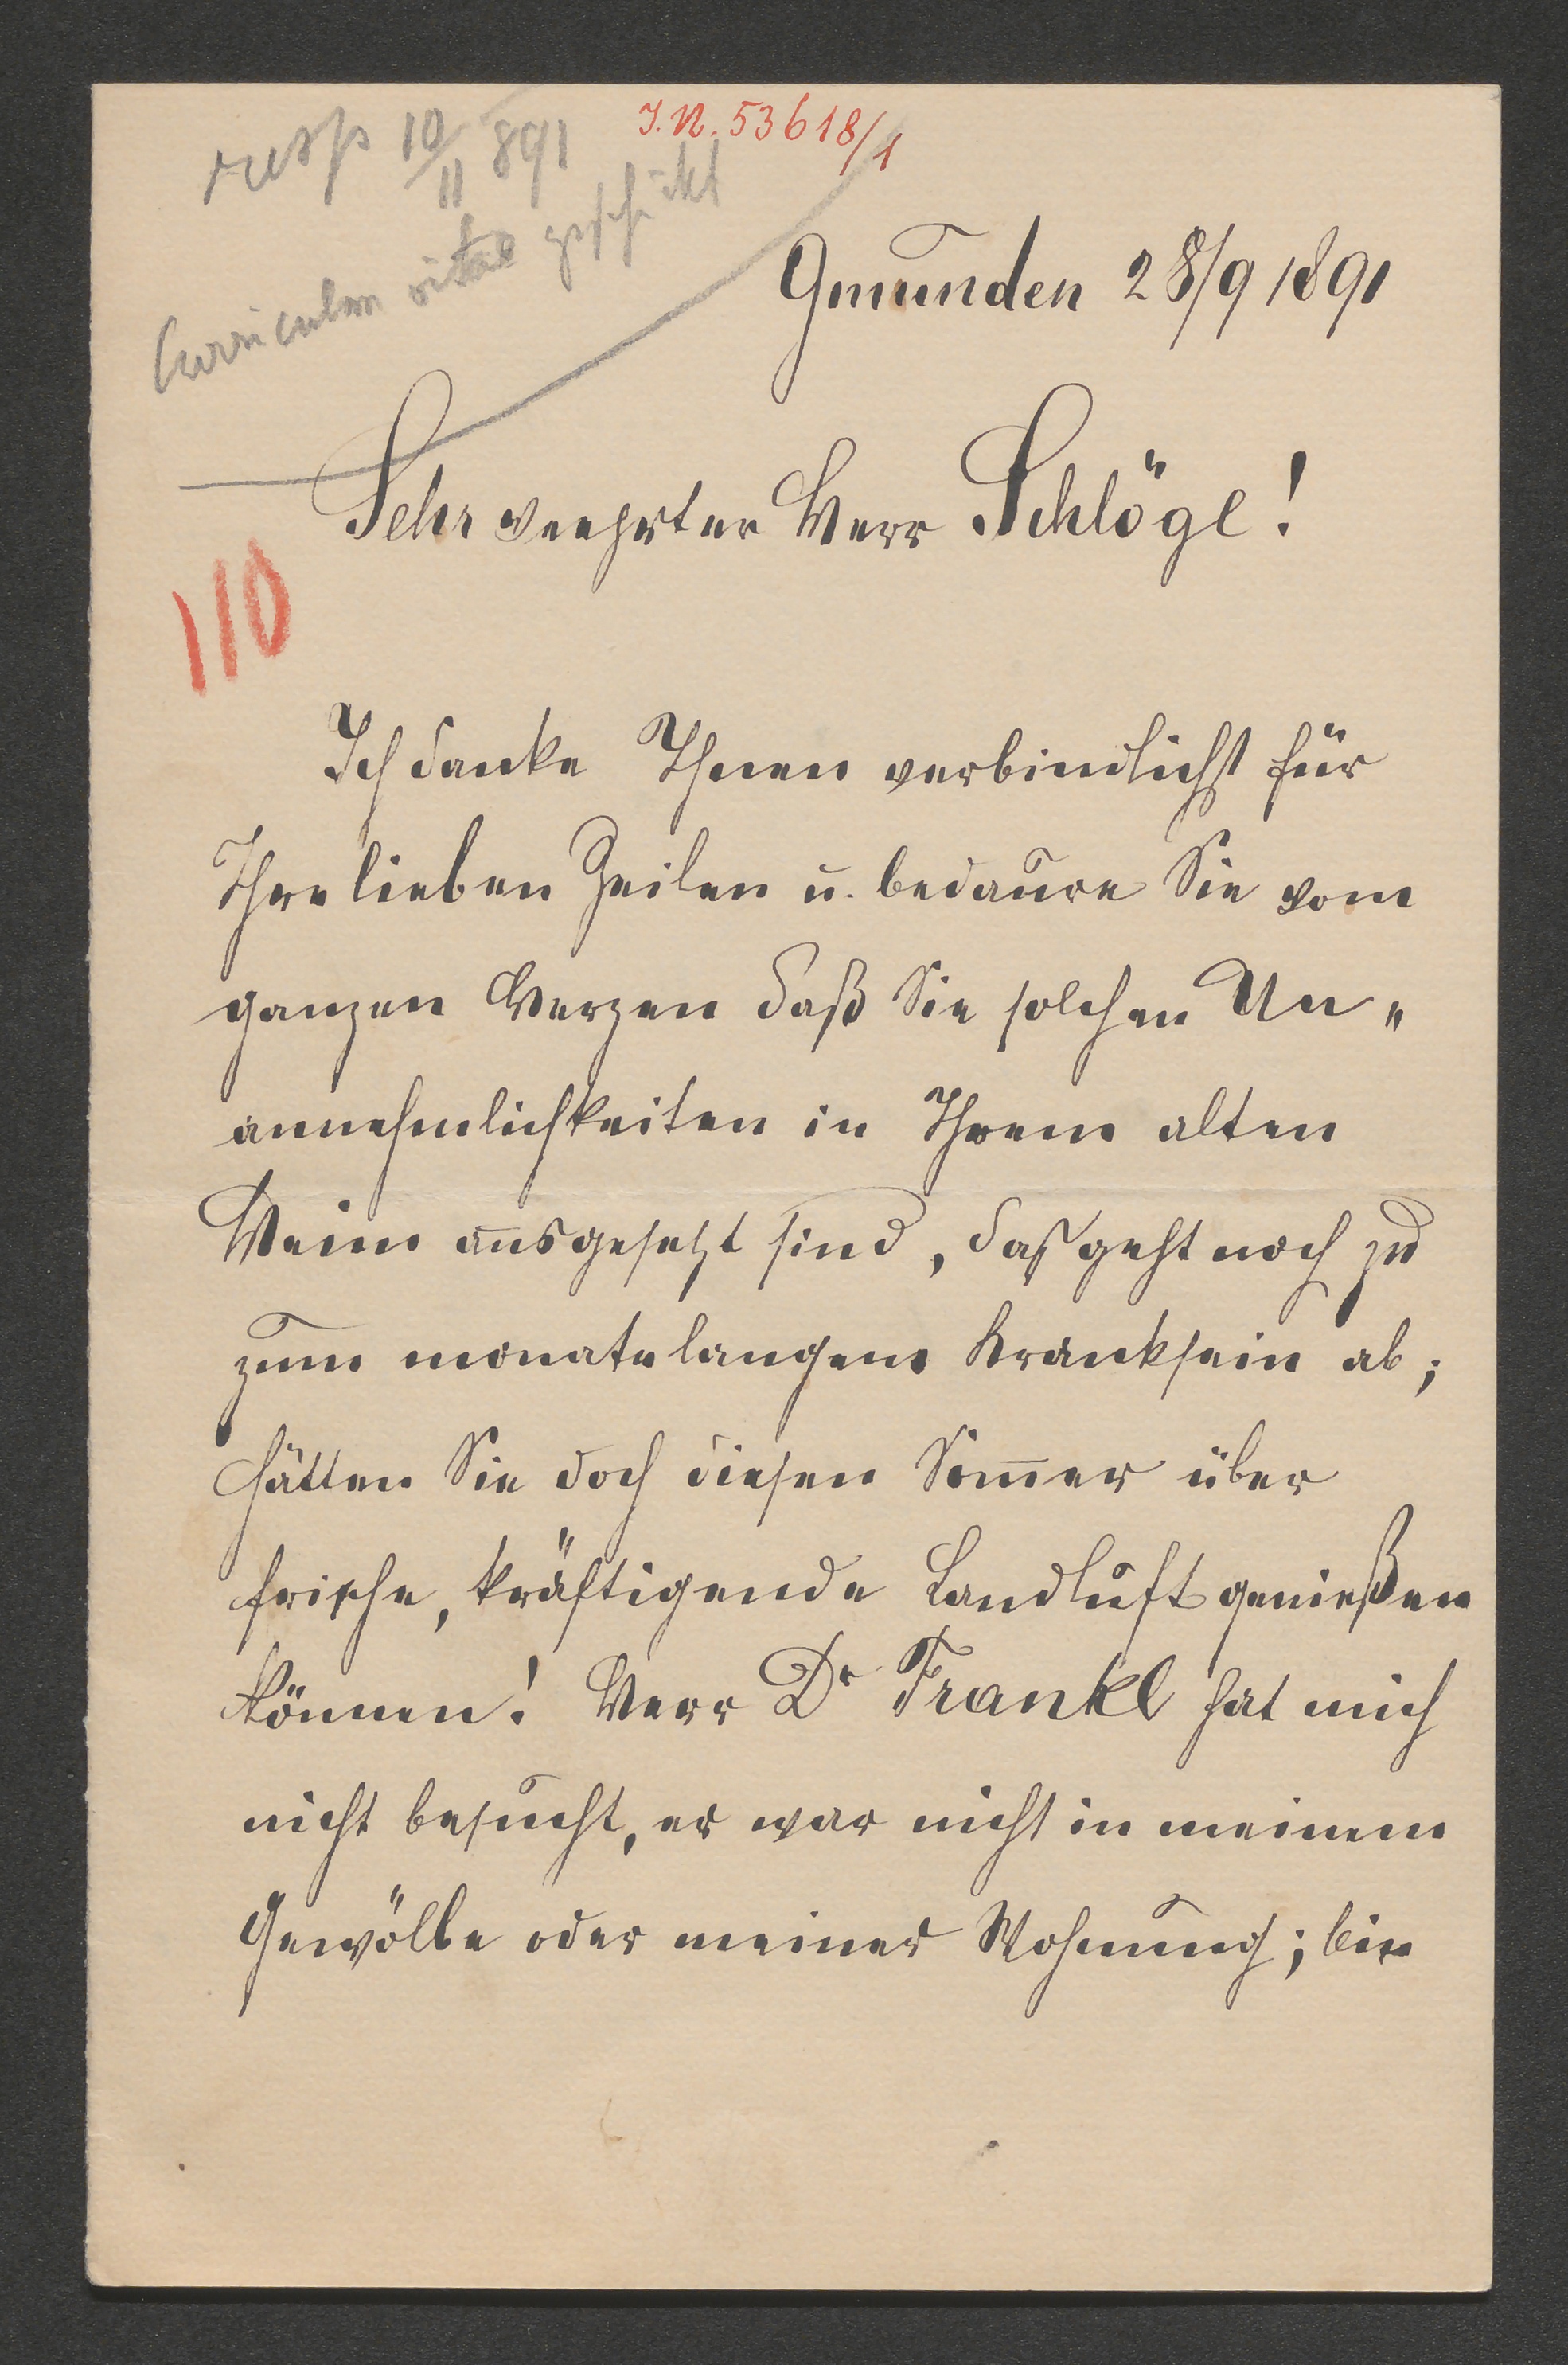 resp 10/11 891
J.N. 53618/1
Curriculum vitae geschikt
Gmunden 28/9 1891
Sehr verehrter Herr Schlögl!
110
Ich danke Ihnen verbindlichst für
Ihre lieben Zeilen u. bedaure Sie vom
ganzen Herzen daß Sie solchen Un„
annehmlichkeiten in Ihrem alten
Heim ausgesetzt sind, das geht noch zu
zum monatelangem Kranksein ab;
hätten Sie doch diesen Som̅er über
frische, kräftigende Landluft genießen
können! Herr Dr Frankl hat mich
nicht besucht, er war nicht in meinem
Gewölbe oder meiner Wohnung; bin